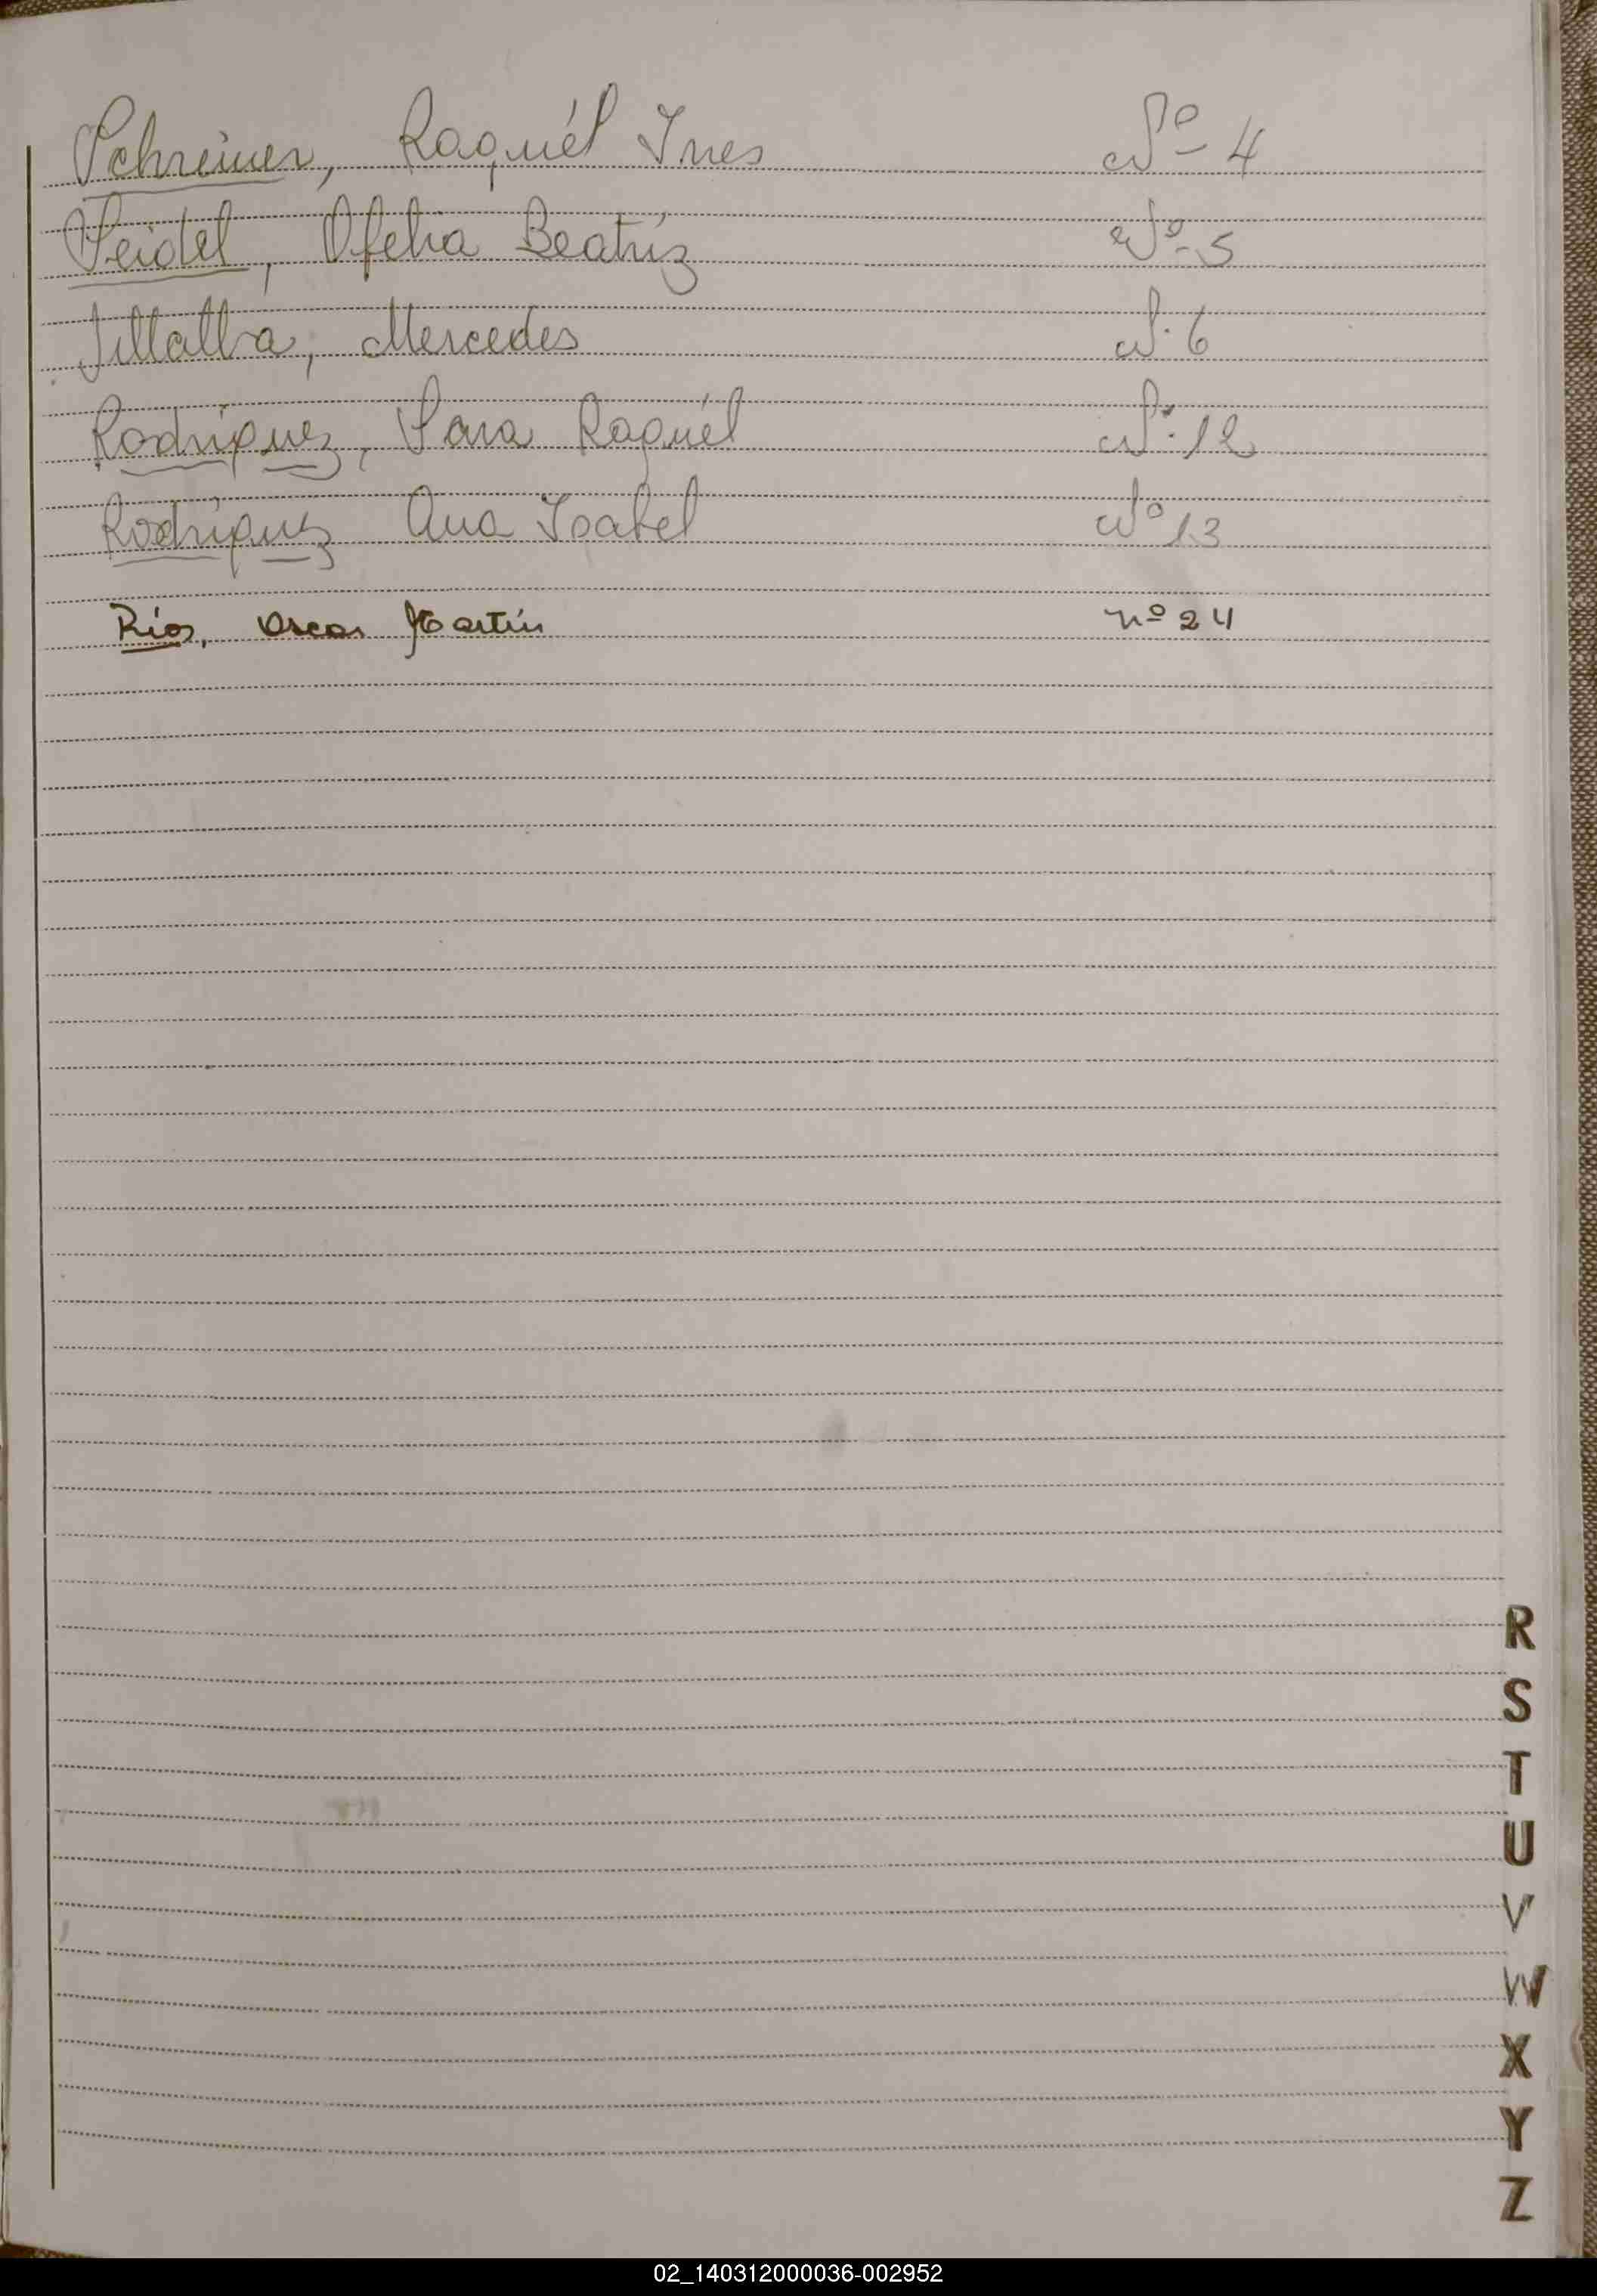 Schreiner, Raquél Ines Nº 4
Seidel, Ofelia Beatríz Nº 5
Villalba, Mercedes N· 6
Rodríguez, Sara Raquél N· 12
Rodríguez Ana Isabel Nº 13
Ríos, Oscar Martín nº 24
R
S
T
U
V
W
X
Y
Z
02_140312000036-002952